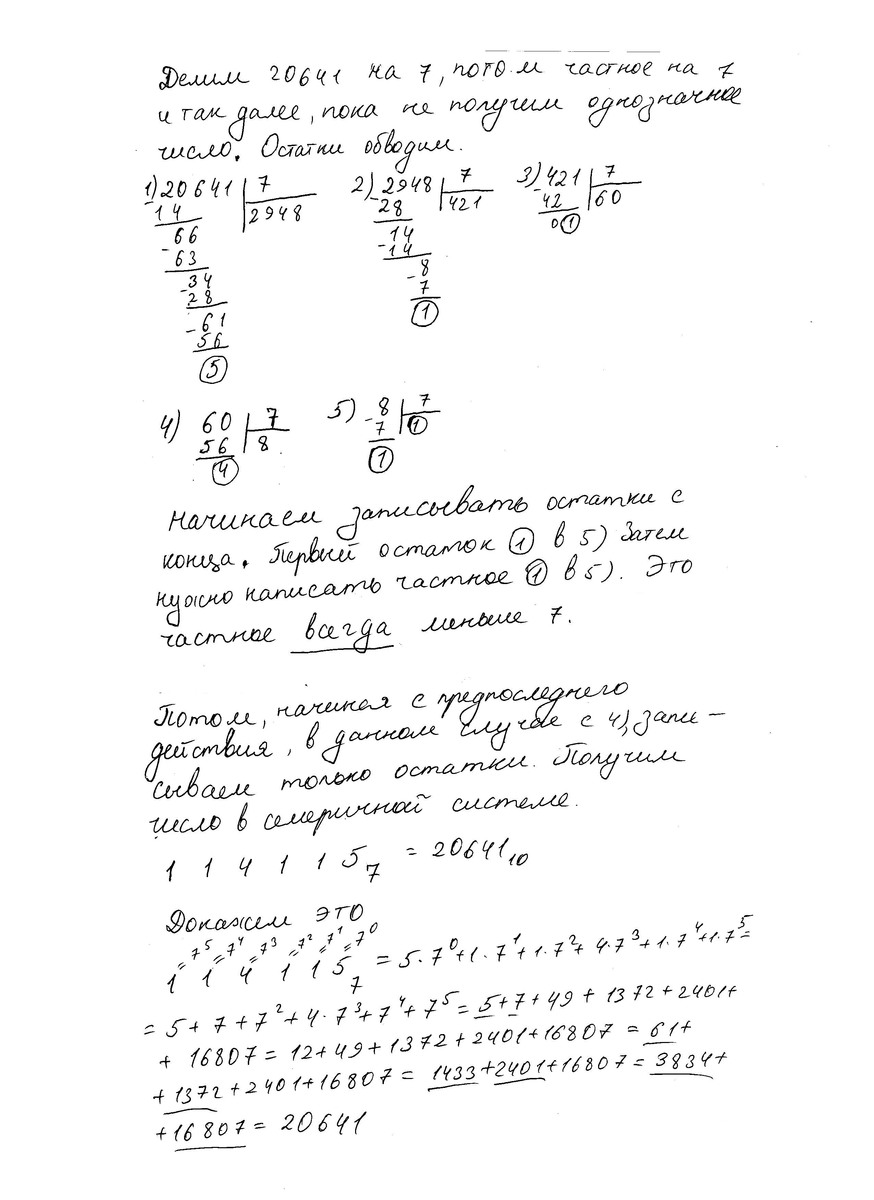 Делим 20641 на 7, потом частное на 7
и так далее, пока не получим однозначное
число. Остатки обводим.
1) 20641 7 2) 2948 7 3) 421 7
-14 2948 -28 421 -42 60
66 14 01
-63 -14
-34 8
28 -7
-61 1
56
5
4) 60 7 5) -8 7
56 8 7 1
4 1
Начинаем записывать остатки с
конца. Первый остаток 1 в 5) Затем
нужно написать частное 1 в 5). Это
частное всегда меньше 7.
Потом, начиная с предпоследнего
действия, в данном случае с 4), запи-
сываем только остатки. Получим
число в семеричной системе.
1 1 4 1 1 5₇ = 20641₁₀
Докажем это
7⁵ 7⁴ 7³ 7² 7¹ 7⁰
1 1 4 1 1 5₇ = 5·7⁰+1·7¹+1·7²+4·7³+1·7⁴+1·7⁵=
= 5+7+7²+4·7³+7⁴+7⁵=5+7+49+1372+2401+
+ 16807 = 12+49+1372+2401+16807 = 61+
+1372+2401+16807 = 1433+2401+16807=3834+
+16807 = 20641